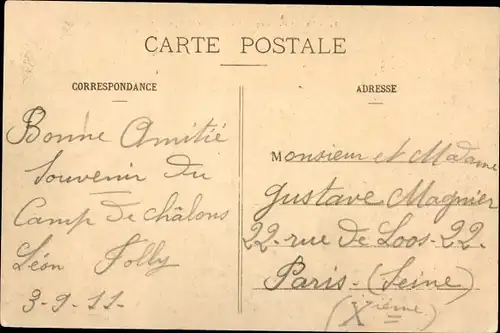 CARTE POSTALE
CORRESPONDANCE
Bonne Amitié
Souvenir du
Camp de châlons
Léon Jolly
3-9-11-
ADRESSE
Monsieur et Madame
Gustave Magnier
22-rue de Loos-22-
Paris-(Seine)
(Xième)